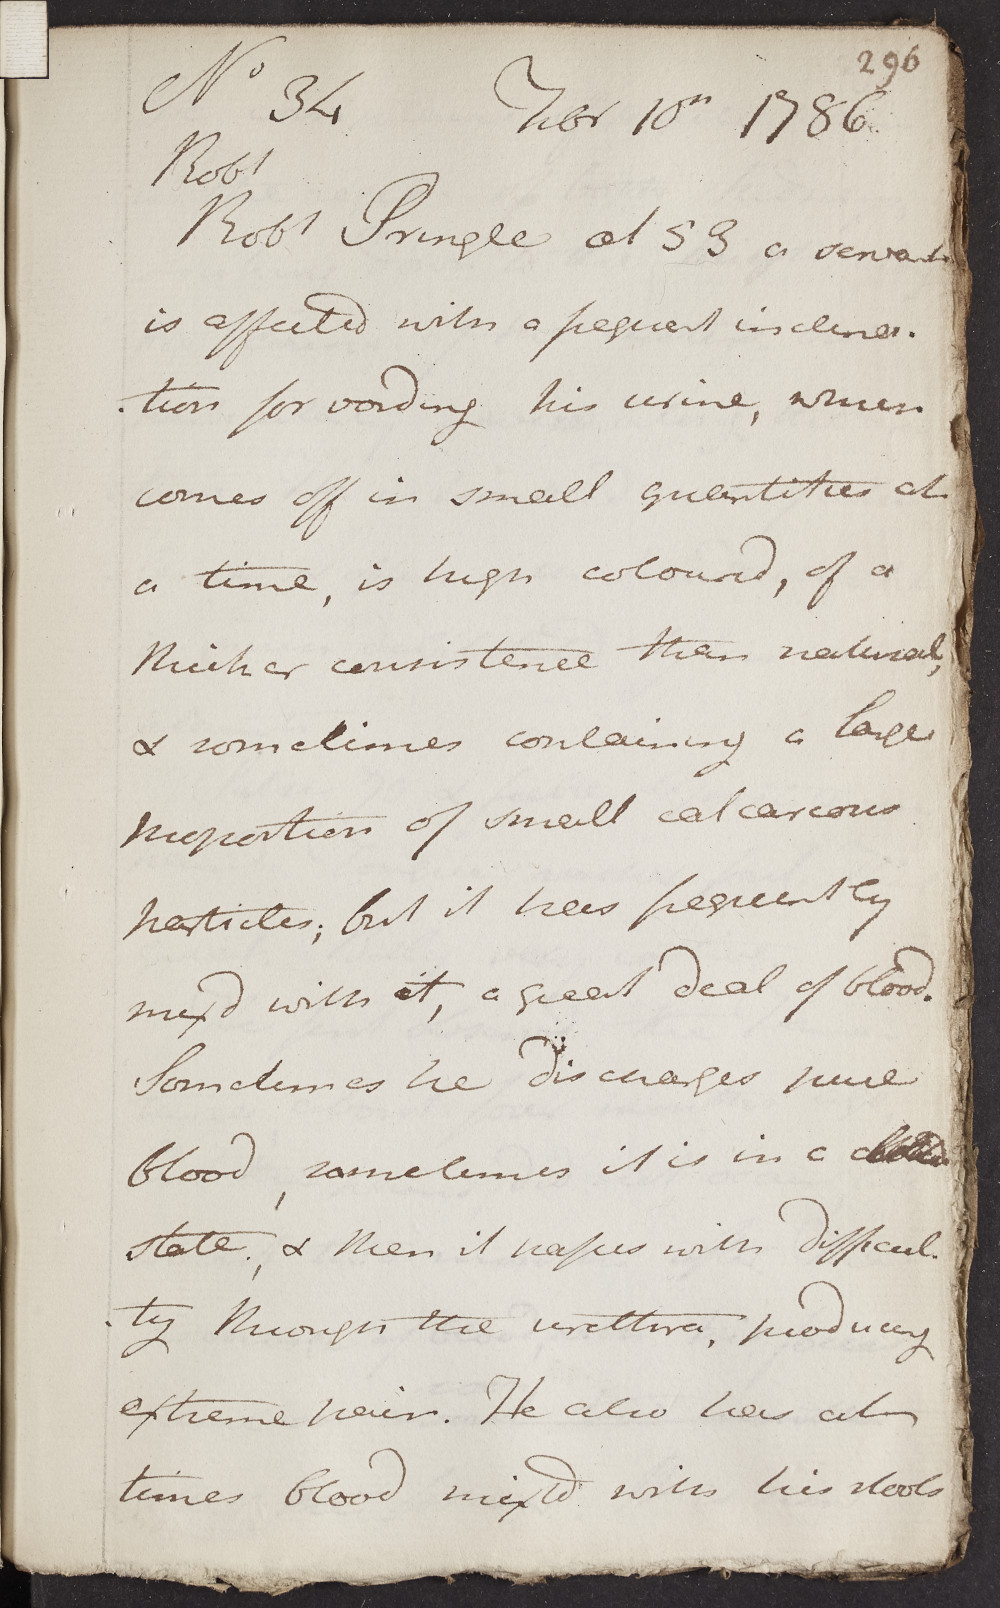 296
No 34 Febr 10th 1786
Robt
Robt Pringle æt 53 a servant
is affected with a frequent inclina-
-tion for voiding his urine, which
comes off in small quantities at
a time, is high coloured, of a
thicker consistence than natural,
& sometimes containing a large
proportion of small calcareous
particles; but it has frequently
mixd with it, a great deal of blood.
Sometimes he discharges pure
blood, sometimes it is in a
state, & then it passes with difficul-
-ty through the urethra, producing
extreme pain. He also has at
times blood mix'd with his stools